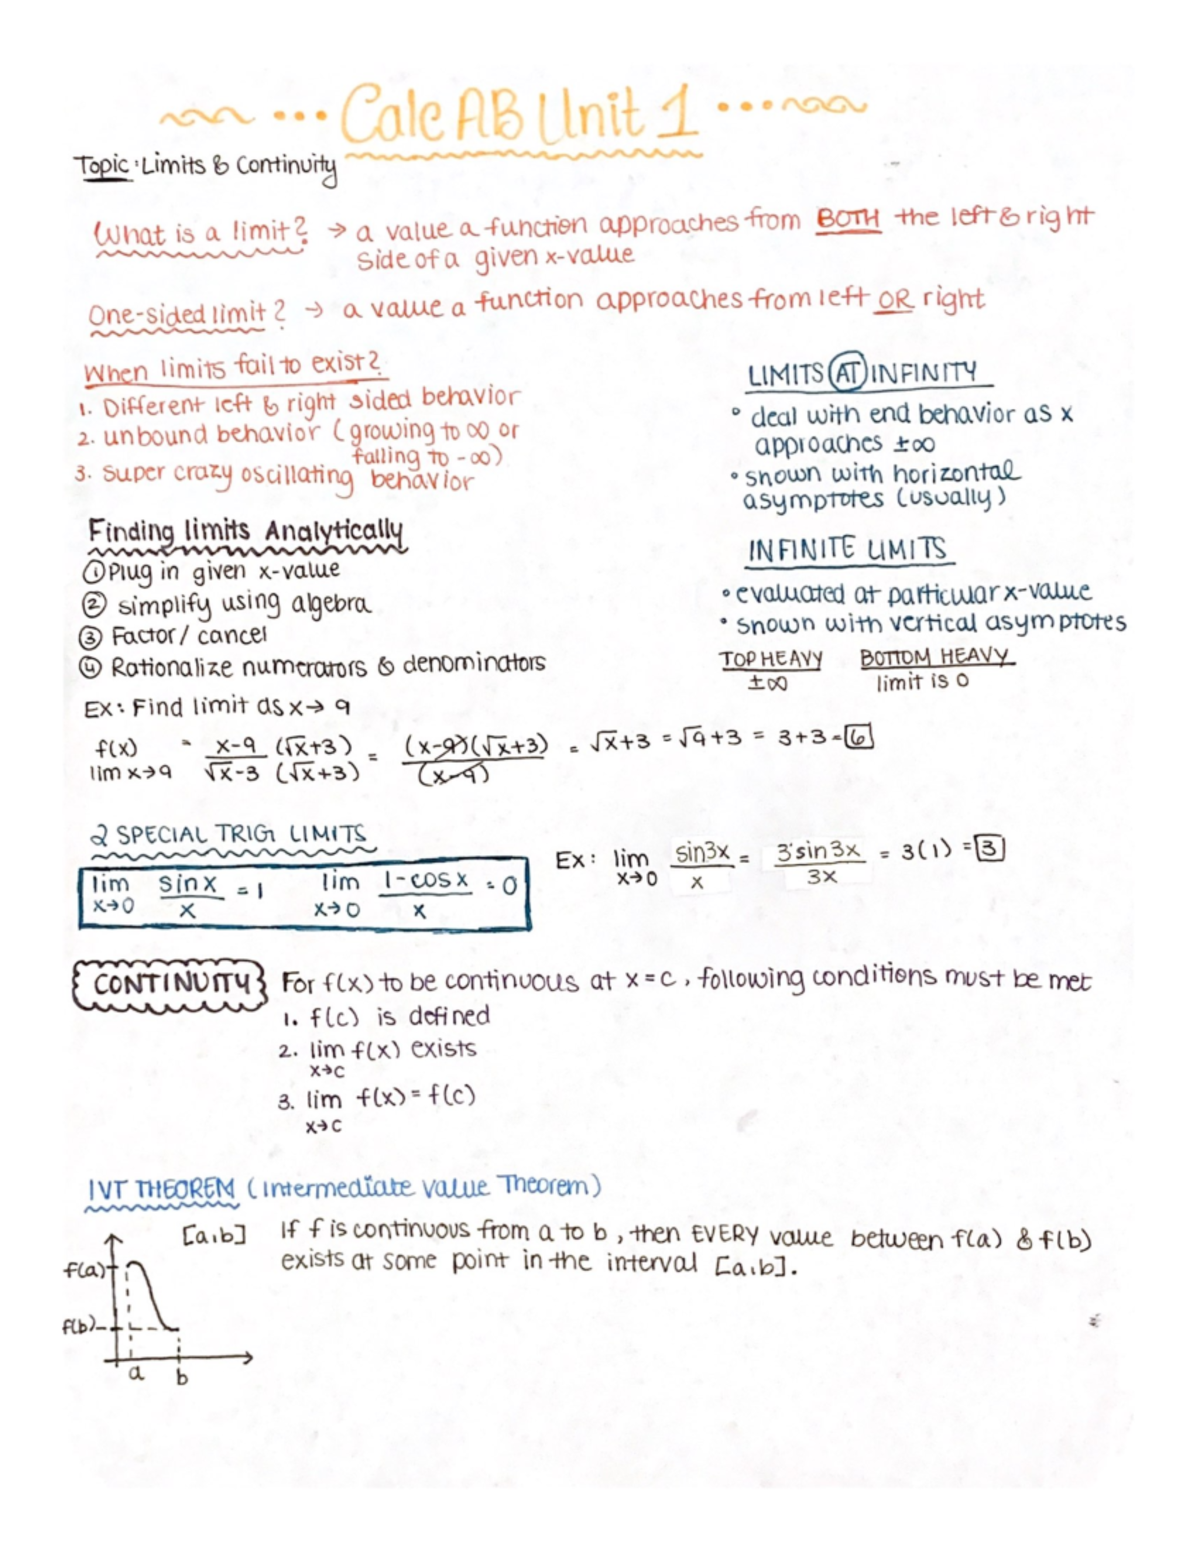 Calc AB Unit 1
Topic: Limits & Continuity
What is a limit? → a value a function approaches from BOTH the left & right
side of a given x-value
One-sided limit? → a value a function approaches from left OR right
When limits fail to exist?
1. Different left & right sided behavior
2. unbound behavior (growing to ∞ or
falling to -∞)
3. super crazy oscillating behavior
LIMITS AT INFINITY
• deal with end behavior as x
approaches ±∞
• shown with horizontal
asymptotes (usually)
Finding limits Analytically
① Plug in given x-value
② simplify using algebra
③ Factor/cancel
④ Rationalize numerators & denominators
INFINITE LIMITS
• evaluated at particular x-value
• shown with vertical asymptotes
TOP HEAVY BOTTOM HEAVY
±∞ limit is 0
Ex: Find limit as x→ 9
f(x) = x-9 (√x+3) = (x-9)(√x+3) = √x+3 = √9+3 = 3+3 = 6
lim x→9 √x-3 (√x+3) (x-9)
2 SPECIAL TRIG LIMITS
lim sinx = 1 lim 1-cosx = 0
x→0 x x→0 x
Ex: lim sin3x = 3·sin3x = 3(1) = 3
x→0 x 3x
CONTINUITY For f(x) to be continuous at x=c, following conditions must be met
1. f(c) is defined
2. lim f(x) exists
x→c
3. lim f(x) = f(c)
x→c
IVT THEOREM (Intermediate value Theorem)
[a,b] If f is continuous from a to b, then EVERY value between f(a) & f(b)
exists at some point in the interval [a,b].
f(a)
f(b)
a b